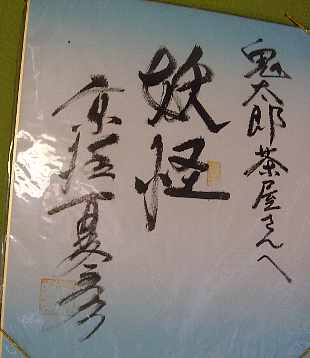 鬼太郎茶屋さんへ
妖怪
京極夏彦